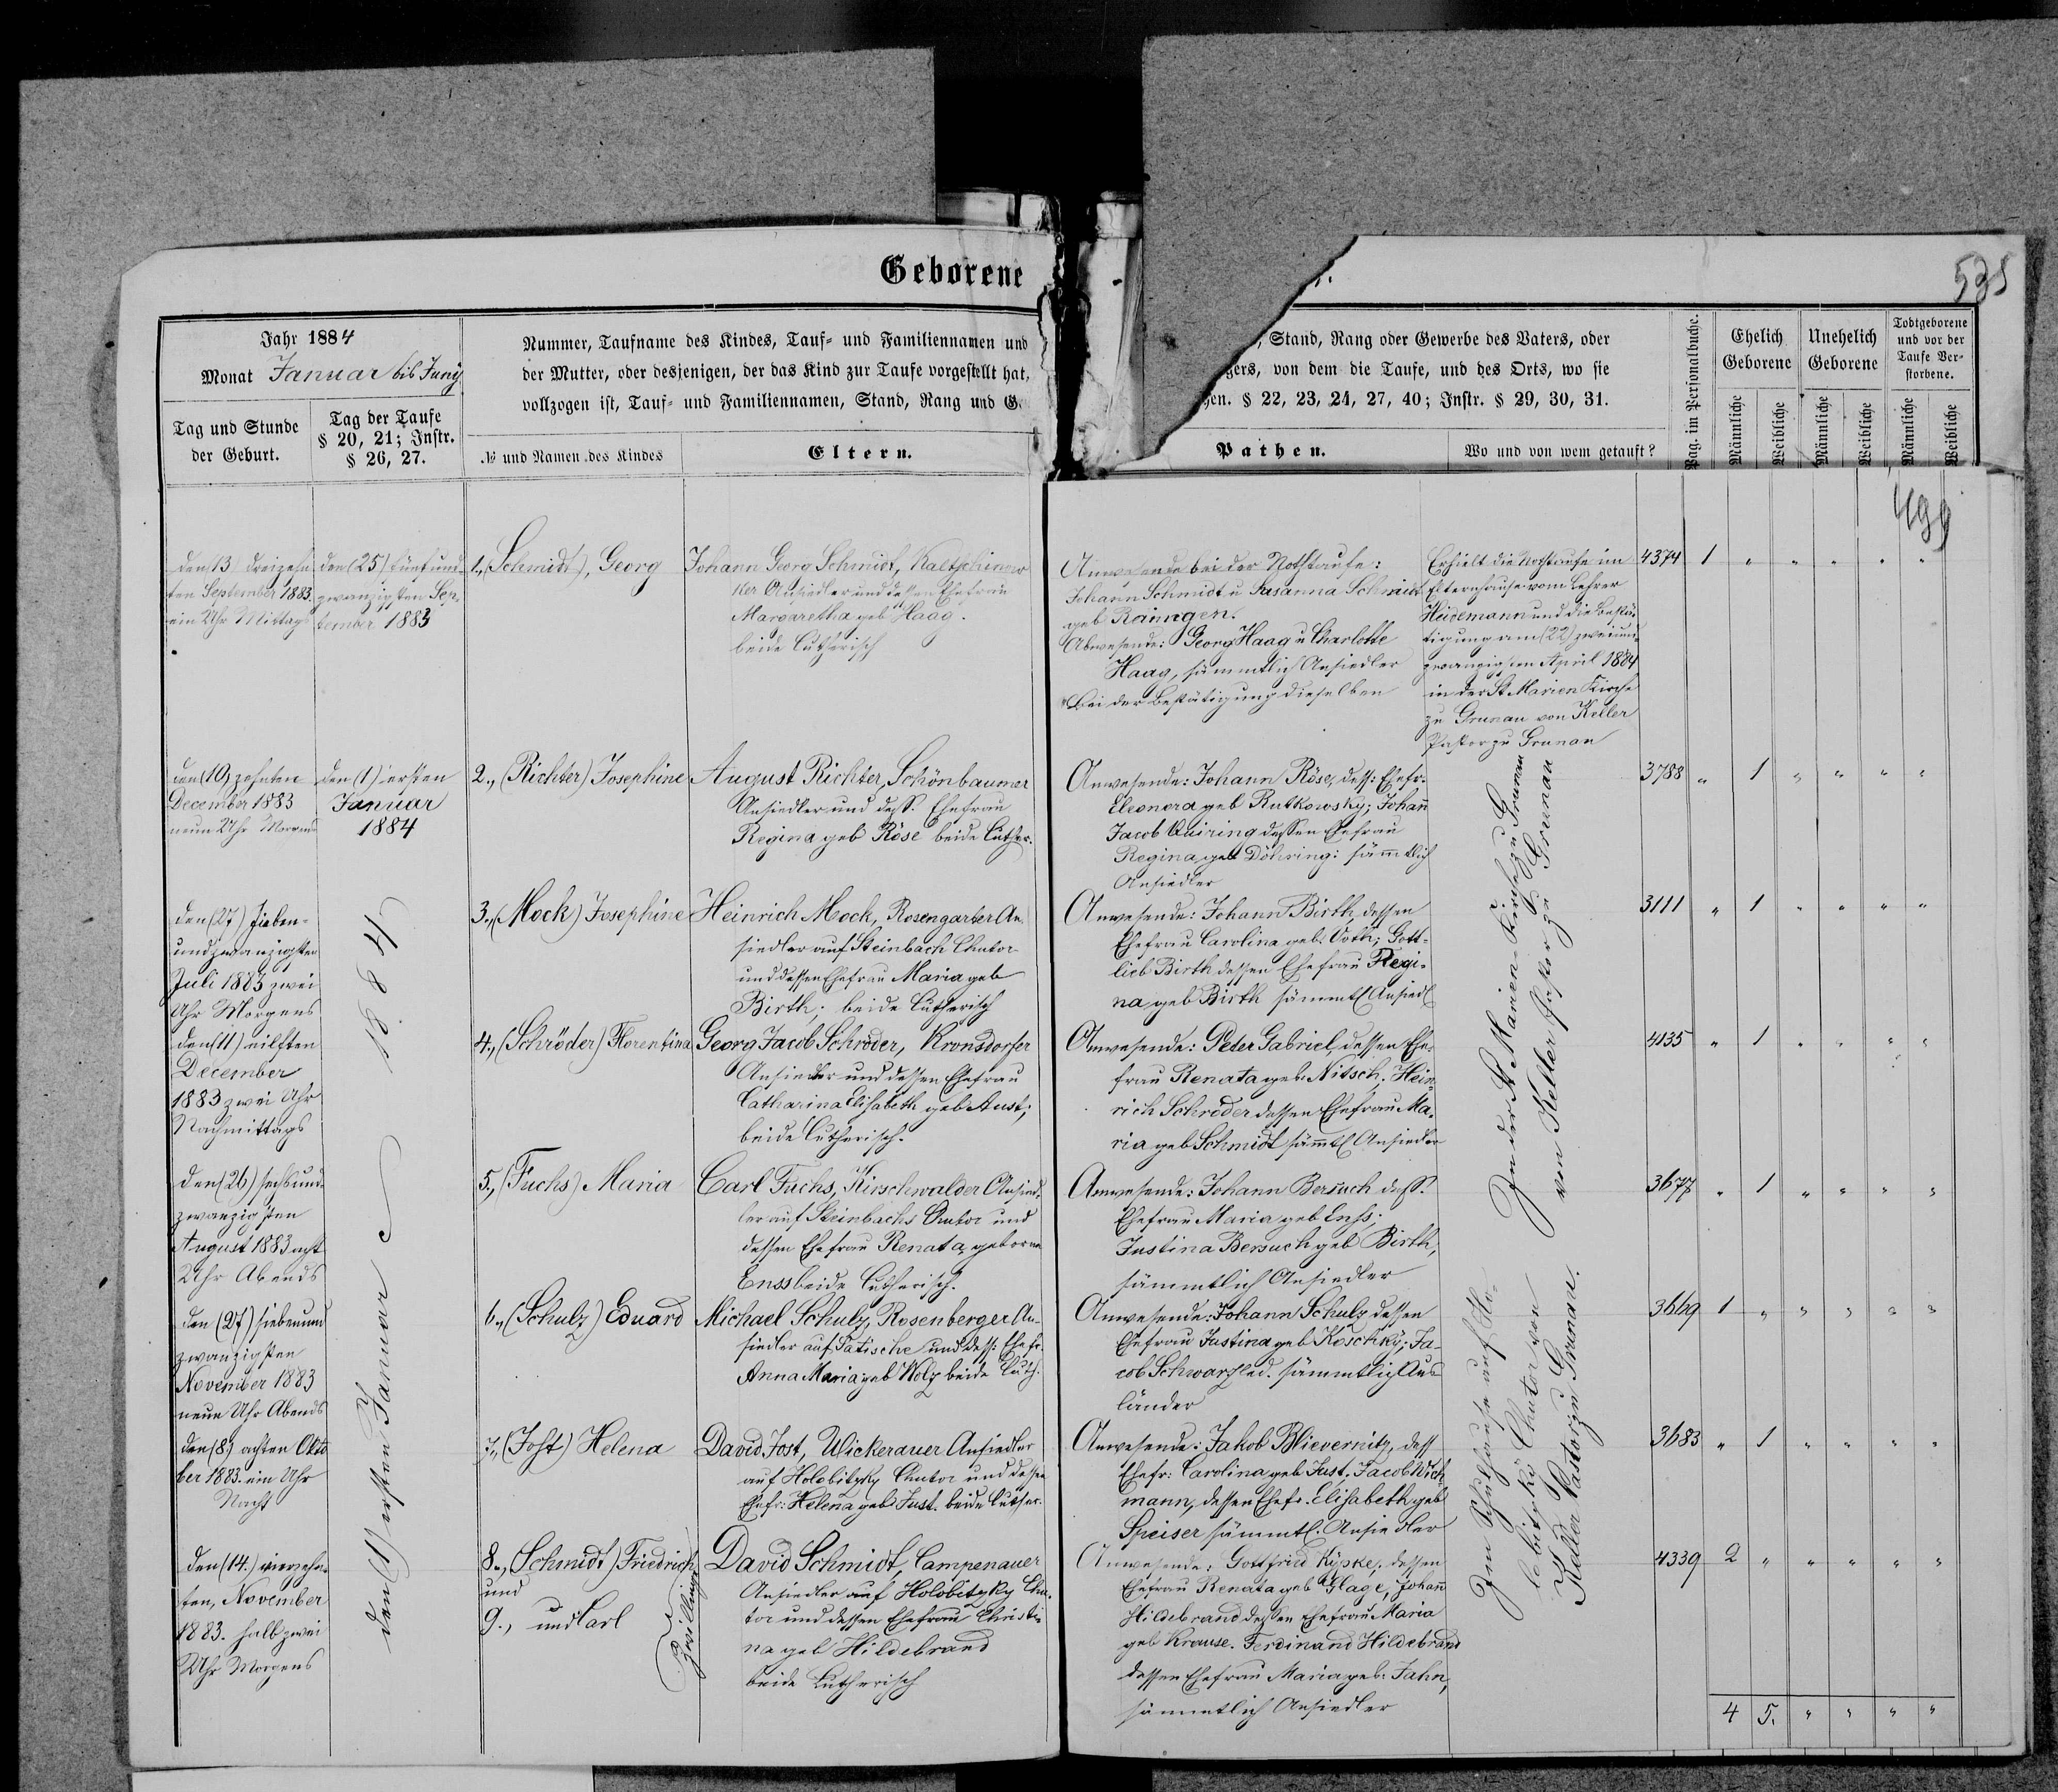 Geborene
535
Jahr 1884
Monat Januar bis Juny
Tag und Stunde
der Geburt.
Tag der Taufe
§ 20, 21; Instr.
§ 26, 27.
Nummer, Taufname des Kindes, Tauf- und Familiennamen und
der Mutter, oder desjenigen, der das Kind zur Taufe vorgestellt hat,
vollzogen ist, Tauf- und Familiennamen, Stand, Rang und
№ und Namen des Kindes
Eltern.
Stand, Rang oder Gewerbe des Vaters, oder
gers, von dem die Taufe, und des Orts, wo sie
hen. § 22, 23, 24, 27, 40; Instr. § 29, 30, 31.
Pathen.
Wo und von wem getauft?
Pag. im Personalbuche.
Ehelich
Geborene
Unehelich
Geborene
Todtgeborene
und vor der
Taufe Ver-
storbene.
Männliche
Weibliche
Männliche
Weibliche
Männliche
Weibliche
499
den (13) dreizehn
ten September 1883.
ein Uhr Mittags
den (25) fünfund
zwanzigsten Sep-
tember 1883
1., (Schmidt), Georg
Johann Georg Schmidt, Kaltschinow
ker Ansiedler und dessen Ehefrau
Margaretha geb Haag.
beide Lutherisch
Anwesende bei der Nothtaufe:
Johann Schmidt u Susanna Schmidt
geb
Abwesende: Georg Haag u Charlotte
Haag, sämmtlich Ansiedler
Bei der Bestätigung dieselben
Erhielt die Nothtaufe im
Elternhause vom Lehrer
Heidemann und die Bestä-
tigung am (22) zweiund
zwanzigsten April 1884
in der St Marien Kirche
zu Grunau von Keller
Pastor zu Grunau
4374 1 " " " " "
den (10) zehnten
December 1883
neun Uhr Morgens
den (1) ersten
Januar
1884
2., (Richter) Josephine
August Richter, Schönbaumer
Ansiedler und dess. Ehefrau
Regina geb Röse beide Luther.
Anwesende: Johann Röse, dess: Ehefr.
Eleonora geb Rutkowsky; Johann
Jacob Quiring dessen Ehefrau
Regina geb Döhring: sämtlich
Ansiedler
3788 " 1 " " " "
den (27) sieben-
undzwanzigsten
Juli 1883 zwei
Uhr Morgens
3., (Mock) Josephine
Heinrich Mock, Rosengarter An-
siedler auf Steinbach Chutor
und dessen Ehefrau Maria geb
Birth; beide Lutherisch
Anwesende: Johann Birth, dessen
Ehefrau Carolina geb. Voth; Gott-
lieb Birth dessen Ehefrau Regi-
na geb Birth sämmtl Ansiedl
3111 " 1 " " " "
den (11) eilften
December
1883 zwei Uhr
Nachmittags
4., (Schröder) Florentina
Georg Jacob Schröder, Kronsdorfer
Ansiedler und dessen Ehefrau
Catharina Elisabeth geb Aust;
beide Lutherisch.
Anwesende: Peter Gabriel, dessen Ehe-
frau Renata geb. Nitsch; Hein-
rich Schröder dessen Ehefrau Ma-
ria geb Schmidt sämtl Ansiedler
4135 " 1 " " " "
den (26) sechsund-
zwanzigsten
August 1883 acht
Uhr Abends
5., (Fuchs) Maria
Carl Fuchs, Kirschwalder Ansied-
ler auf Steinbachs Chutor und
dessen Ehefrau Renata, geborne
Enss beide Lutherisch.
Anwesende: Johann Bersuch dess.
Ehefrau Maria geb Enss;
Justina Bersuch geb Birth,
sämmtlich Ansiedler
3677 " 1 " " " "
In der St Marien-Kirche zu Grunau
von Keller Pastor zu Grunau
den (27) siebenund
zwanzigsten
November 1883
neun Uhr Abends
6., (Schulz) Eduard
Michael Schulz, Rosenberger An-
siedler auf Tatische und dess: Ehefr.
Anna Maria geb Wolz beide Luth.
Anwesende: Johann Schulz dessen
Ehefrau Justina geb Koschky; Ja-
cob Schwarz led. sämmtlich Aus
länder
3669 1 " " " " "
den (8) achten Okto
ber 1883. ein Uhr
Nacht
7., (Jost) Helena
David Jost, Wickerauer Ansiedler
auf Holobitzky Chutor und dessen
Ehefr: Helena geb Just. beide Luther.
Anwesende: Jakob Blievernitz, dess
Ehefr: Carolina geb Just; Jacob Wich-
mann, dessen Ehefr. Elisabeth geb
Speiser sämmtl. Ansiedler
3683 " 1 " " " "
den (14.) vierzehn-
ten, November
1883. halb zwei
Uhr Morgens
den (1) ersten Januar 1884
8., (Schmidt) Friedrich
und
9., und Carl
Zwillinge
David Schmidt, Campenauer
Ansiedler auf Holobitzky Chu-
tor und dessen Ehefrau Christi-
na geb Hildebrand
beide Lutherisch
Anwesende: Gottfried Kypke, dessen
Ehefrau Renata geb Hage, Johann
Hildebrand dessen Ehefrau Maria
geb Krause. Ferdinand Hildebrand
dessen Ehefrau Maria geb. Jahn,
sämmtlich Ansiedler
Im Schulhause auf Ho-
lobitzky Chutor von
Keller Pastor zu Grunau.
4339 2 " " " " "
4 5. " " " "